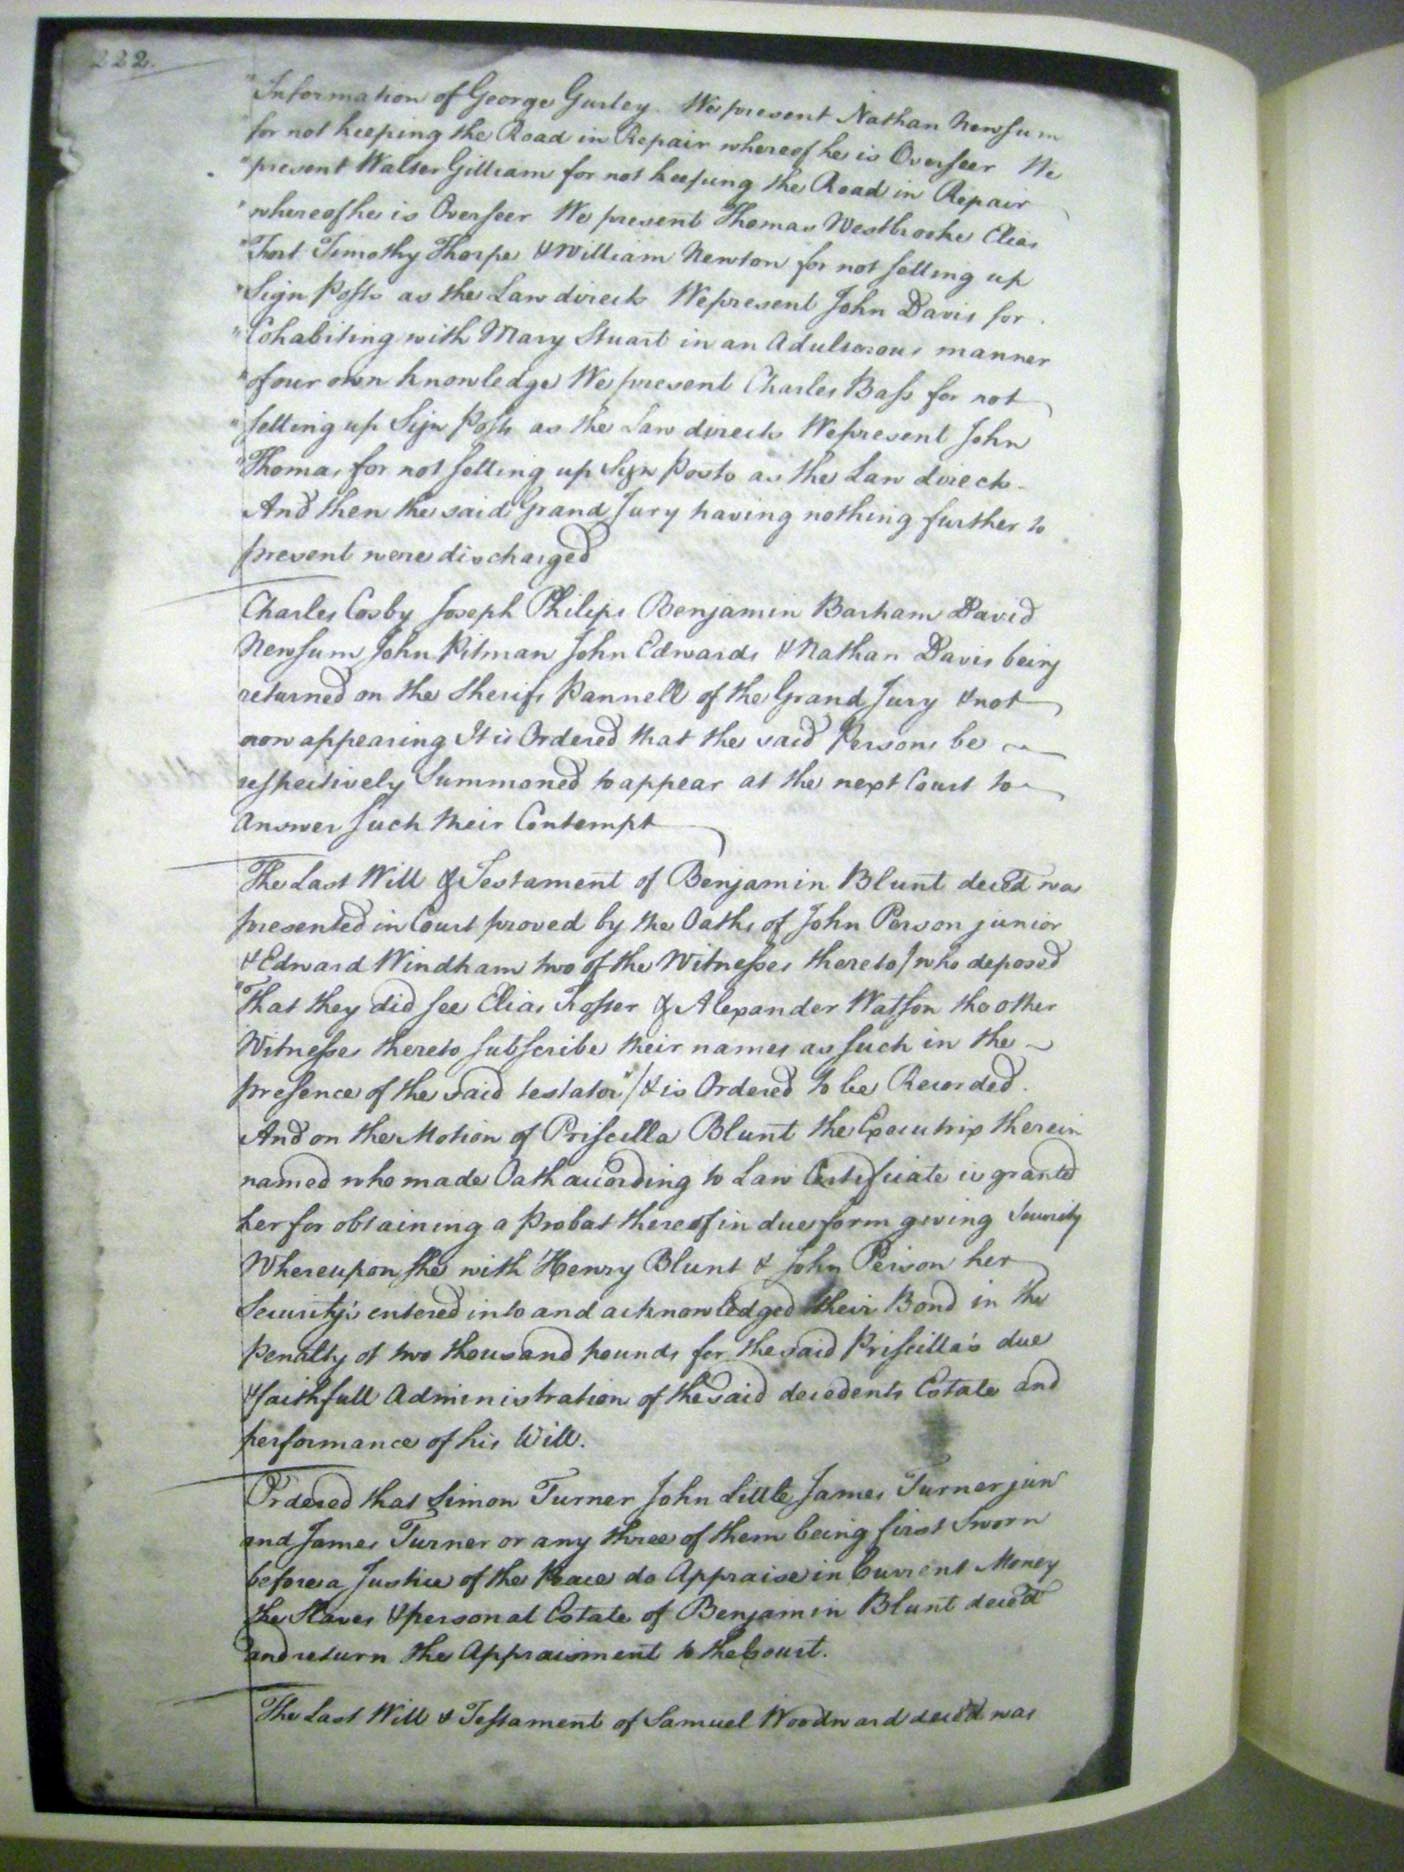 222.
"Information of George Gurley. We present Nathan Newsum
"for not keeping the Road in Repair whereof he is Overseer We
"present Walter Gilliam for not keeping the Road in Repair
"whereof he is Overseer We present Thomas Westbrooke Elias
"Fort Timothy Thorpe & William Newton for not setting up
"Sign Posts as the Law directs We present John Davis for
"Cohabiting with Mary Stuart in an Adulterous manner
"of our own knowledge We present Charles Bass for not
"setting up Sign Posts as the Law directs We present John
"Thomas for not setting up Sign Posts as the Law directs
And then the said Grand Jury having nothing further to
present were discharged
Charles Cosby Joseph Philips Benjamin Barham David
Newsum John Pitman John Edwards & Nathan Davis being
returned on the Sherifs Pannell of the Grand Jury & not
now appearing It is Ordered that the said Persons be
respectively Summoned to appear at the next Court to
answer such their Contempt
The Last Will & Testament of Benjamin Blunt deced was
presented in Court proved by the Oaths of John Person junior
& Edward Windham two of the Witnesses thereto /who deposed
"That they did see Elias Fosser & Alexander Watson the other
Witnesses thereto subscribe their names as such in the
presence of the said testator"/ & is Ordered to be Recorded.
And on the Motion of Priscilla Blunt the Executrix therein
named who made Oath according to Law Certificate is granted
her for obtaining a Probat thereof in due form giving Security
Whereupon she with Henry Blunt & John Person her
Security's entered into and acknowledged their Bond in the
Penalty of two thousand pounds for the said Priscilla's due
& faithfull Administration of the said decedents Estate and
performance of his Will.
Ordered that Simon Turner John Little James Turner jun
and James Turner or any three of them being first Sworn
before a Justice of the Peace do Appraise in Current Money
the Slaves & personal Estate of Benjamin Blunt deced
and return the Appraisment to the Court.
The Last Will & Testament of Samuel Woodward deced was